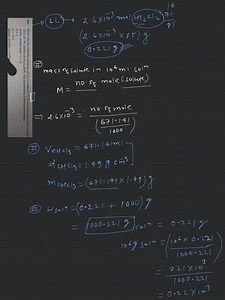 1L → 2.6×10⁻³ mol CH₂Cl₂
(2.6×10⁻³ × 85) g
0.221 g
mass of solute in 10⁶ ml soln
M = no of mole (solute)
⇒ 2.6×10⁻³ = no of mole
(671.141)
1000
VCHCl₃ = 671.141 ml
dCHCl₃ = 1.49 g cm⁻³
mCHCl₃ = (671.141 × 1.49) g
Wsoln = (0.221 + 1000) g
= 1000.221 g soln = 0.221 g
10⁶ g soln = (10⁶ × 0.221)
1000.221
= 221×10³
1000.221
= 0.22×10³